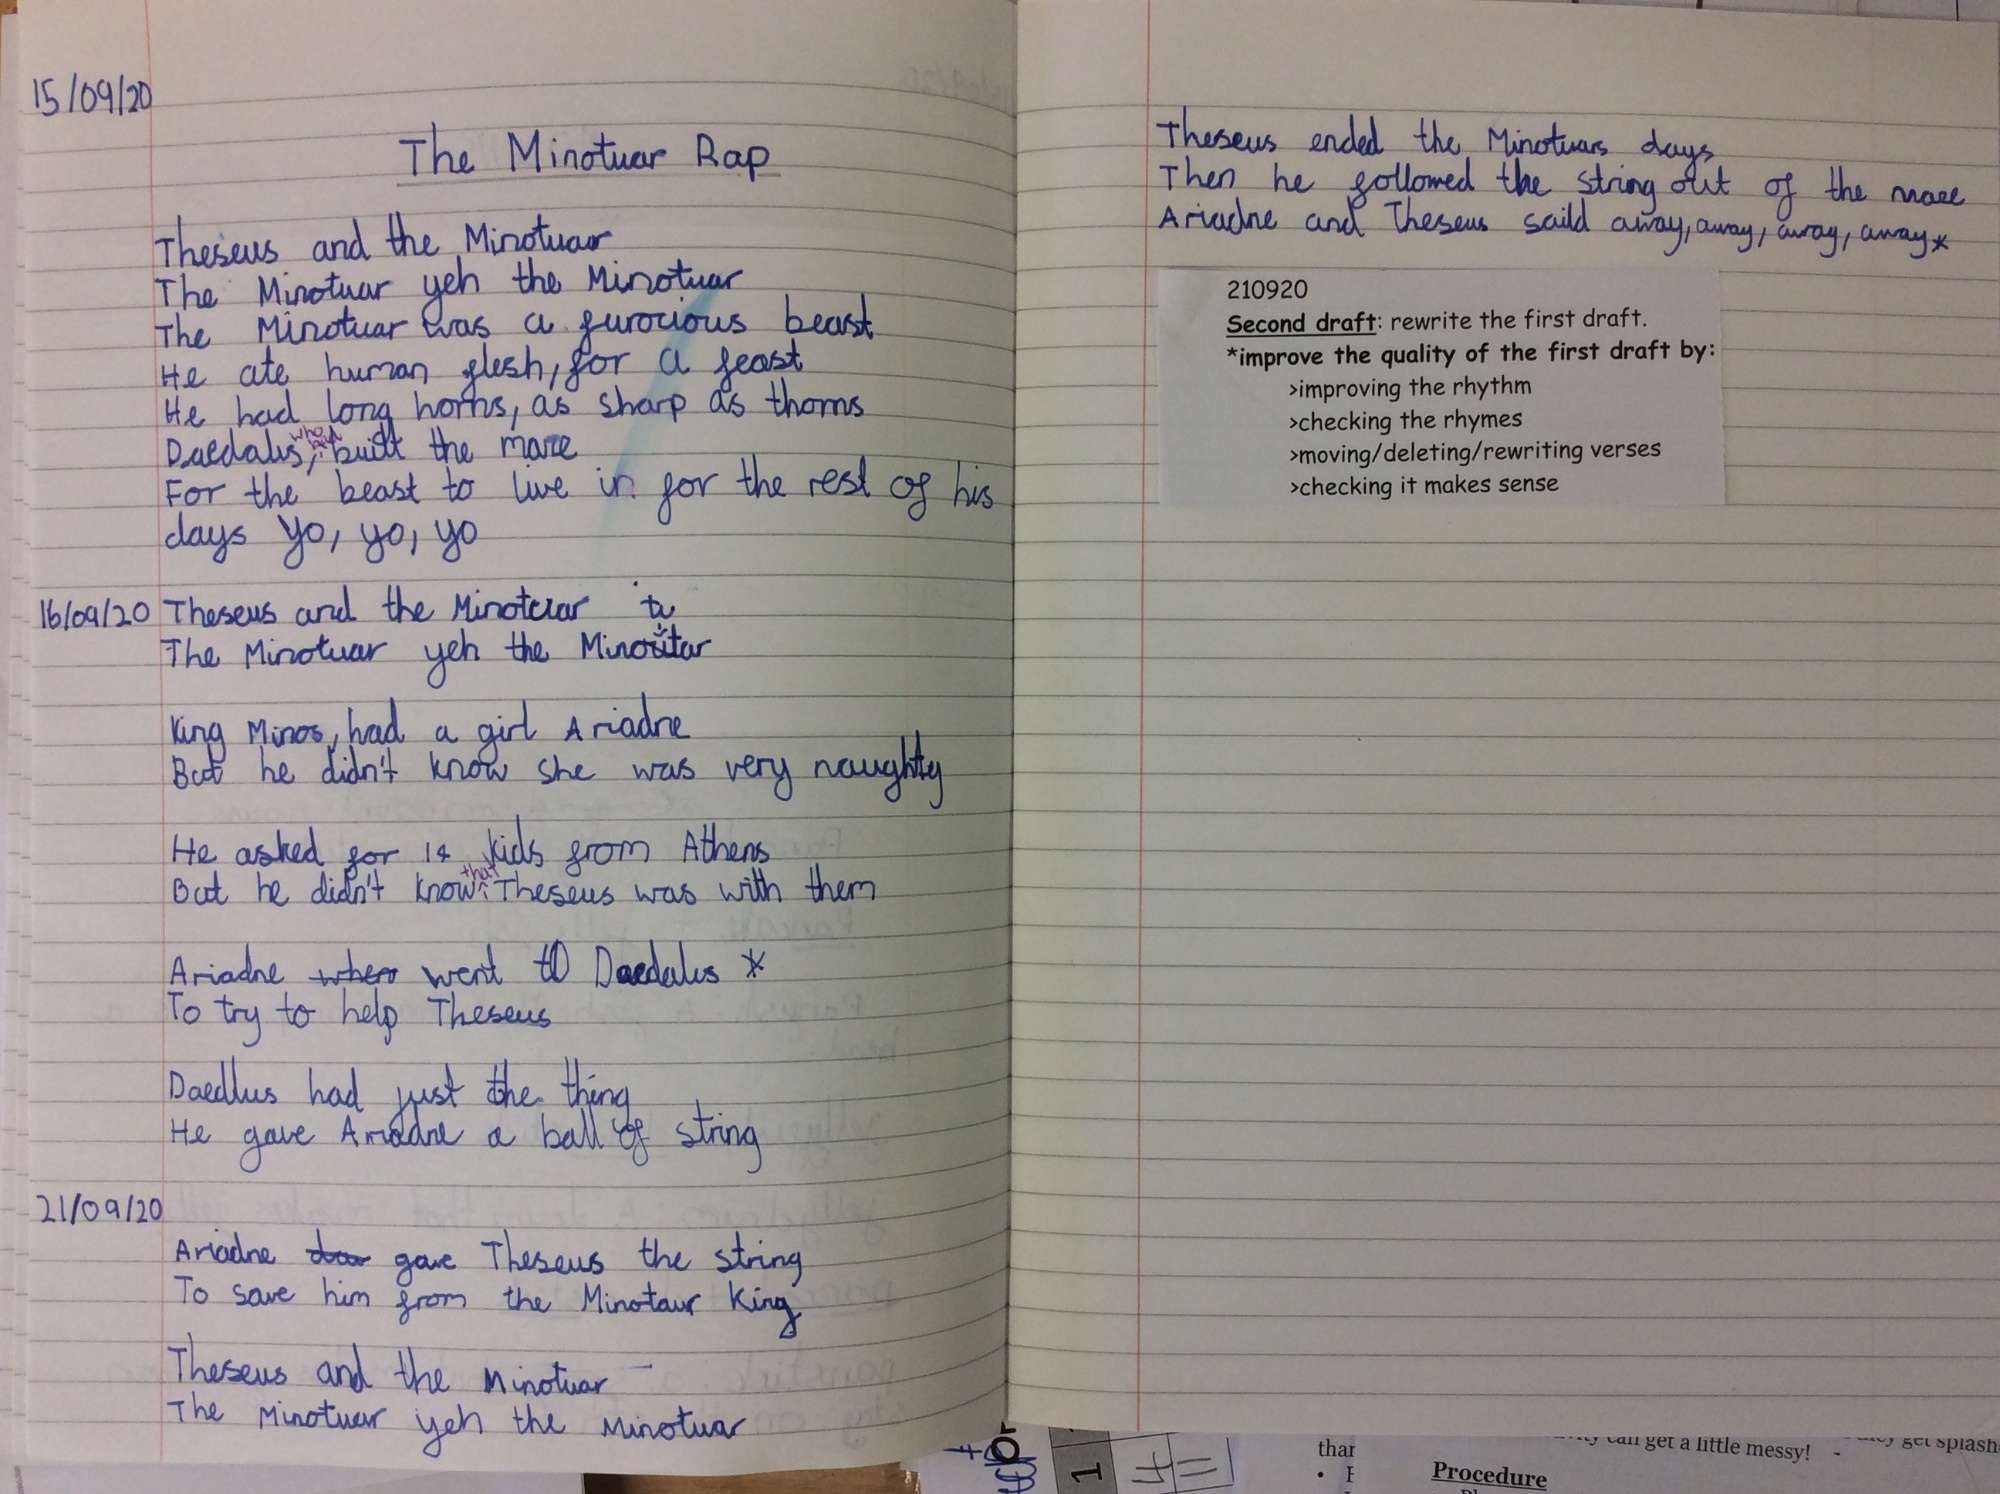 15/09/20
The Minotuar Rap
Theseus and the Minotuar
The Minotuar yeh the Minotuar
The Minotuar was a furocious beast
He ate human flesh, for a feast
He had long horns, as sharp as thorns
Daedalus, who had built the maze
For the beast to live in for the rest of his
days yo, yo, yo
16/09/20 Theseus and the Minotuar
tu
The Minotuar yeh the Minotar
King Minos, had a girl Ariadne
But he didn't know she was very naughty
He asked for 14 kids from Athens
But he didn't know that Theseus was with them
Ariadne when went to Daedalus *
To try to help Theseus
Daedlus had just the thing
He gave Ariadne a ball of string
21/09/20
Ariadne gave Theseus the string
To save him from the Minotaur King
Theseus and the Minotuar
The Minotuar yeh the Minotuar
Theseus ended the Minotuars days
Then he followed the string out of the maze
Ariadne and Theseus saild away, away, away, away*
210920
Second draft: rewrite the first draft.
*improve the quality of the first draft by:
>improving the rhythm
>checking the rhymes
>moving/deleting/rewriting verses
>checking it makes sense
can get a little messy!
get splash
than
Procedure